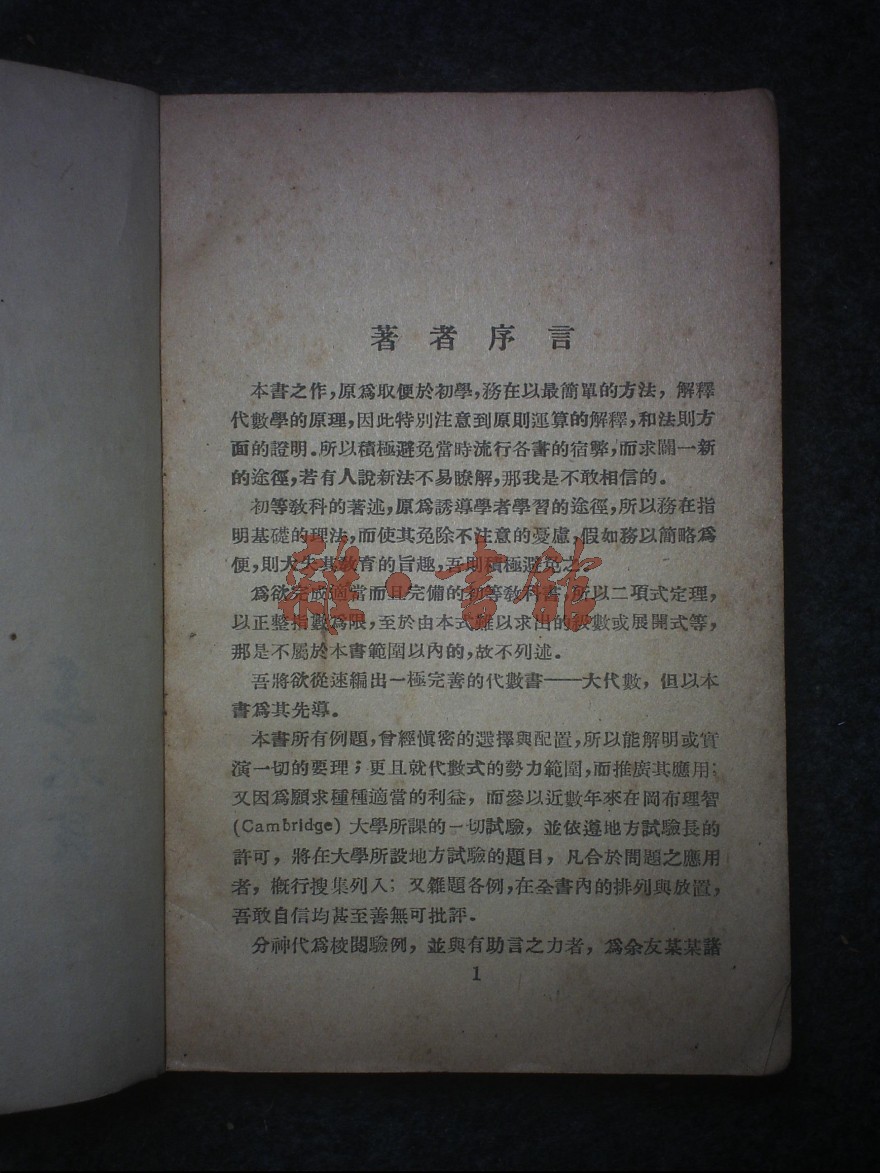 著者序言
本書之作，原爲取便於初學，務在以最簡單的方法，解釋
代數學的原理，因此特別注意到原則運算的解釋，和法則方
面的證明。所以積極避免當時流行各書的宿弊，而求闢一新
的途徑，若有人說新法不易瞭解，那我是不敢相信的。
初等教科的著述，原爲誘導學者學習的途徑，所以務在指
明基礎的理法，而使其免除不注意的憂慮，假如務以簡略爲
便，則大失其教育的旨趣，吾則積極避免之。
爲欲完成適當而且完備的初等教科書 所以二項式定理，
以正整指數爲限，至於由本式難以求出的級數或展開式等，
那是不屬於本書範圍以內的，故不列述。
吾將欲從速編出一極完善的代數書——大代數，但以本
書爲其先導。
本書所有例題，曾經愼密的選擇與配置，所以能解明或實
演一切的要理；更且就代數式的勢力範圍，而推廣其應用；
又因爲願求種種適當的利益，而參以近數年來在岡布理智
(Cambridge) 大學所課的一切試驗，並依遵地方試驗長的
許可，將在大學所設地方試驗的題目，凡合於問題之應用
者，槪行搜集列入；又雜題各例，在全書內的排列與放置，
吾敢自信均甚至善無可批評。
分神代爲校閱驗例，並與有助言之力者，爲余友某某諸
1
雜·書館